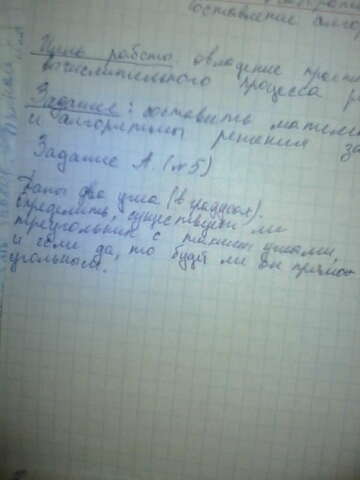 составление алгор
Цель работы овладение прак
вычислительного процесса р
Задание: составить матем
и алгоритмы решения за
Задание А. (№5)
Даны два угла (в градусах).
Определить, существует ли
треугольник с такими углами,
и если да, то будет ли он прямо-
угольным.